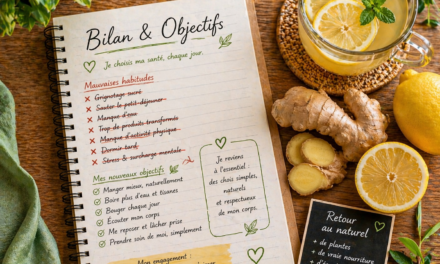 Bilan & Objectifs
Je choisis ma santé, chaque jour.
Mauvaises habitudes
Grignotage sucré
Sauter le petit-déjeuner
Manque d'eau
Trop de produits transformés
Manque d'activité physique
Dormir tard
Stress & surcharge mentale
Mes nouveaux objectifs
Manger mieux, naturellement
Boire plus d'eau et tisanes
Bouger chaque jour
Écouter mon corps
Me reposer et lâcher prise
Prendre soin de moi, simplement
Je reviens
à l'essentiel :
des choix simples,
naturels
et respectueux
de mon corps.
Mon engagement :
Retour
au naturel
+ de plantes
+ de vraie nourriture